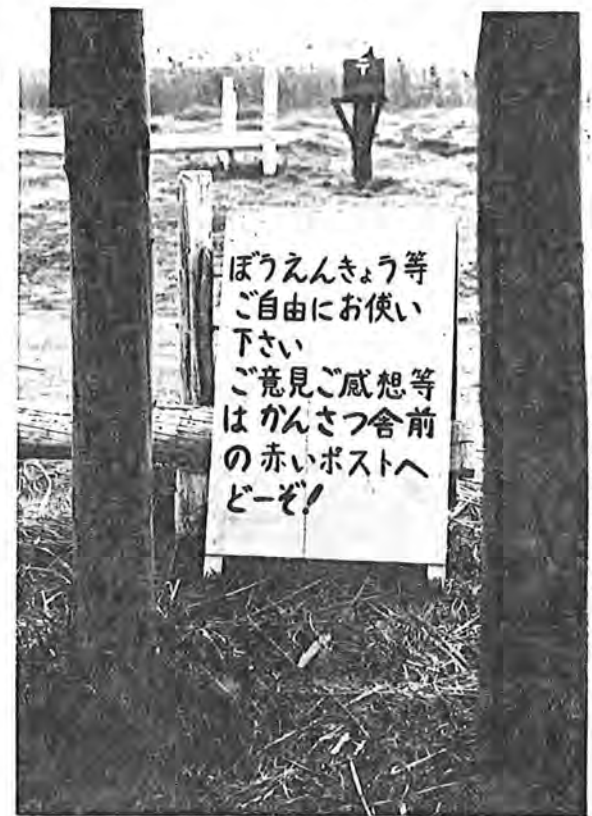 〒
ぼうえんきょう等
ご自由にお使い
下さい
ご意見ご感想等
は かんさつ舎前
の赤いポストへ
どーぞ!